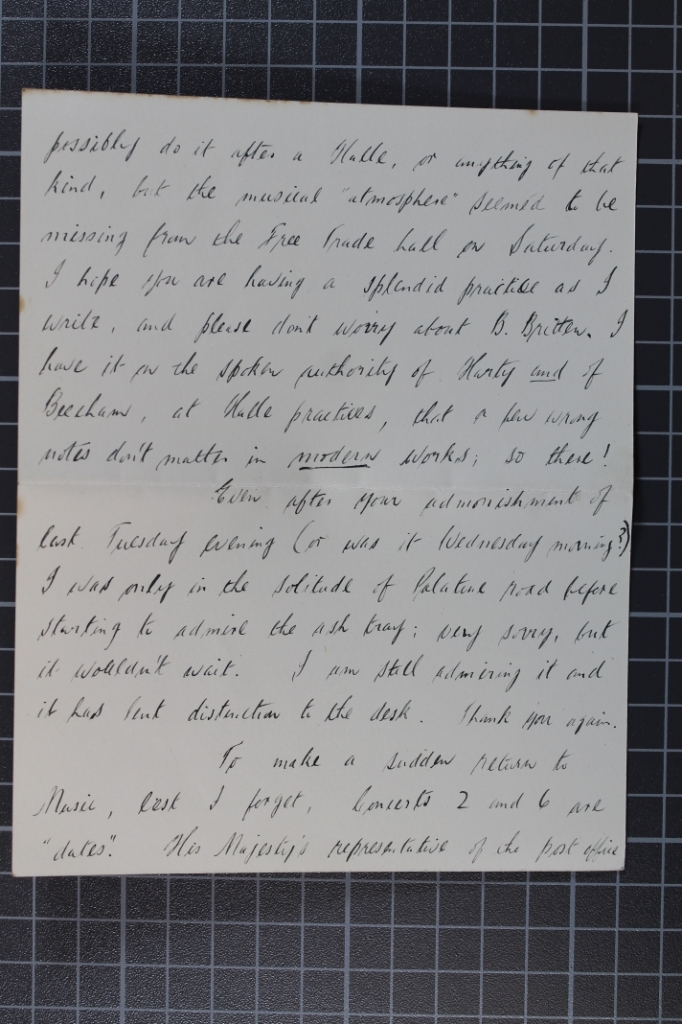 possibly do it after a Halle, or anything of that
kind, but the musical "atmosphere" seemed to be
missing from the Free Trade hall on Saturday.
I hope you are having a splendid practice as I
write, and please don't worry about B. Britten. I
have it on the spoken authority of Harty and of
Beecham, at Halle practices, that a few wrong
notes don't matter in modern works; so there!
Even after your admonishment of
last Tuesday evening (or was it Wednesday morning?)
I was only in the solitude of Palatine road before
starting to admire the ash tray; very sorry, but
it wouldn't wait. I am still admiring it and
it has lent distinction to the desk. Thank you again.
To make a sudden return to
Music, lest I forget, Concerts 2 and 6 are
"dates". His Majesty's representative of the post office